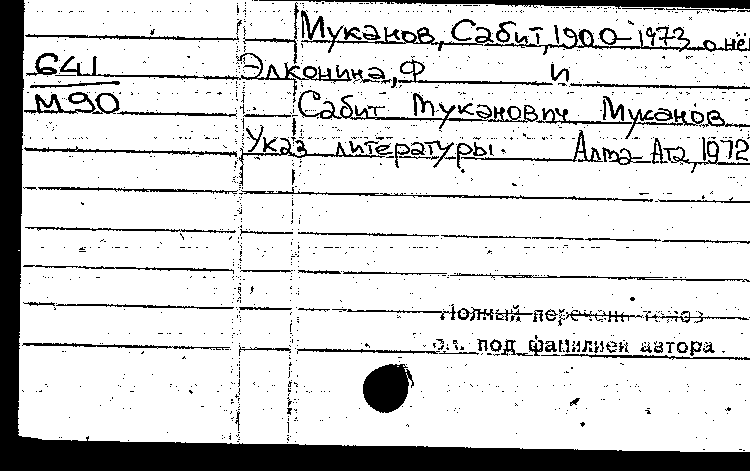 Муканов, Сабит, 1900-1973 о нём
641 Элконина, Ф И
М90 Сабит Муканович Муканов
Указ литературы. Алма-Ата, 1972
Полный перечень томов
см. под фамилией автора